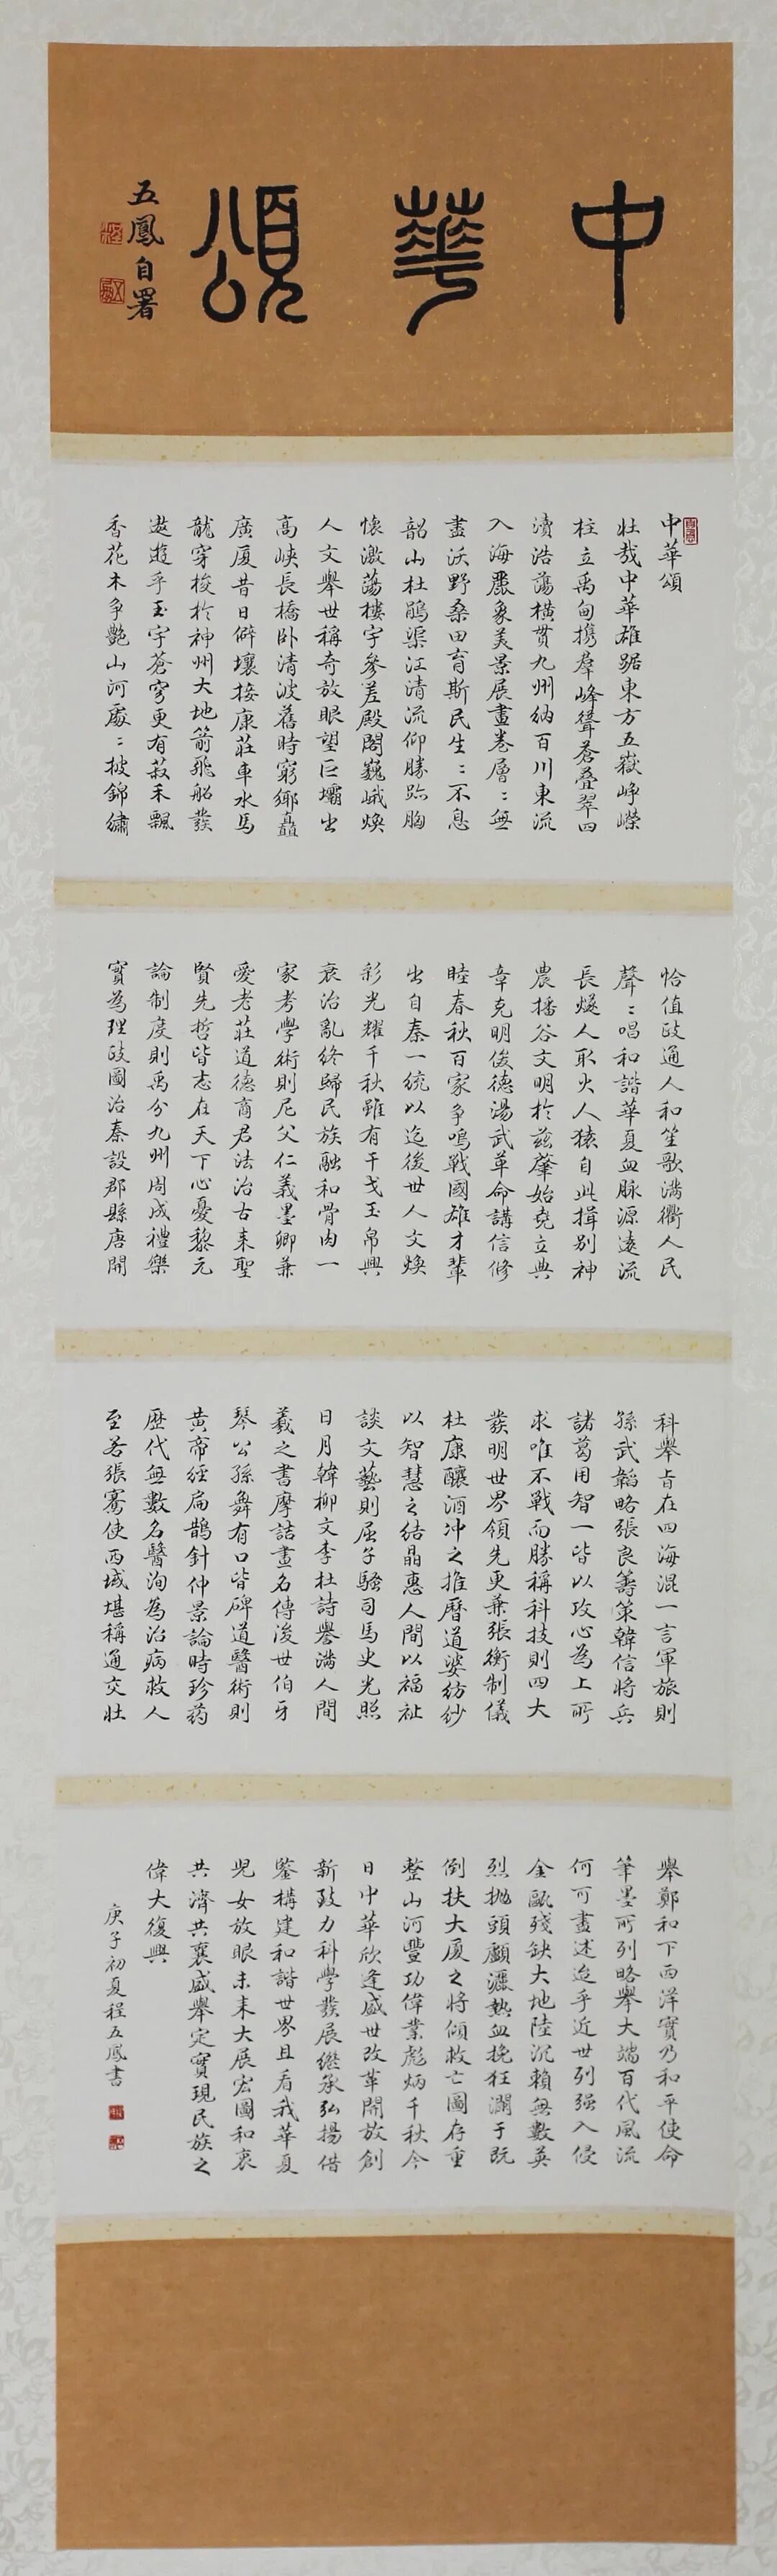 中華頌
五鳳自署
中華頌
壯哉中華雄踞東方五嶽崢嶸
柱立禹甸擕羣峰聳蒼叠翠四
瀆浩蕩橫贯九州納百川東流
入海麗象美景展畫卷層〻無
盡沃野桑田育斯民生〻不息
韶山杜鵑渠江清流仰勝跡胸
懷激蕩樓宇參差殿閣巍峨煥
人文舉世稱奇放眼望巨壩出
高峽長橋卧清波舊時窮鄉矗
廣厦昔日僻壤接康莊車水馬
龍穿梭於神州大地箭飛船發
遨遊乎玉宇蒼穹更有菽禾飄
香花木争艷山河處〻披錦繡
恰值政通人和笙歌满衢人民
聲〻唱和諧華夏血脉源遠流
長燧人取火人猿自此揖别神
農播谷文明於兹肇始堯立典
章克明俊德湯武革命講信修
睦春秋百家争鳴戰國雄才輩
出自秦一統以迄後世人文煥
彩光耀千秋雖有干戈玉帛興
衰治亂終歸民族融和骨肉一
家考學術則尼父仁義墨卿兼
愛老莊道德商君法治古来聖
賢先哲皆志在天下心憂黎元
論制度則禹分九州周成禮樂
實為理政圖治秦設郡縣唐開
科舉旨在四海混一言軍旅則
孫武韜略張良籌策韓信將兵
諸葛用智一皆以攻心為上所
求唯不戰而勝稱科技則四大
發明世界領先更兼張衡制儀
杜康釀酒冲之推曆道婆紡紗
以智慧之结晶惠人間以福祉
談文藝則屈子騷司馬史光照
日月韓柳文李杜詩譽满人間
羲之書摩詰畫名傳後世伯牙
琴公孫舞有口皆碑道醫術則
黄帝經扁鵲針仲景論時珍药
歷代無數名醫洵為治病救人
至若張騫使西域堪稱通交壯
舉鄭和下西洋實乃和平使命
筆墨所列略舉大端百代風流
何可盡述迨乎近世列强入侵
金甌殘缺大地陸沉賴無數英
烈抛頭顱灑熱血挽狂瀾于既
倒扶大厦之將傾救亡圖存重
整山河豐功偉業彪炳千秋今
日中華欣逢盛世改革開放創
新致力科學發展繼承弘揚借
鑒構建和諧世界且看我華夏
兒女放眼未来大展宏圖和衷
共濟共襄盛舉定實現民族之
偉大復興
庚子初夏程五鳳書